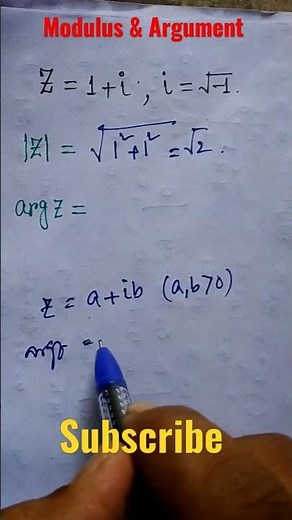 Modulus & Argument
Z = 1+i , i = √-1.
|Z| = √1²+1² = √2 .
arg z =
z = a+ib (a,b>0)
arg =
Subscribe